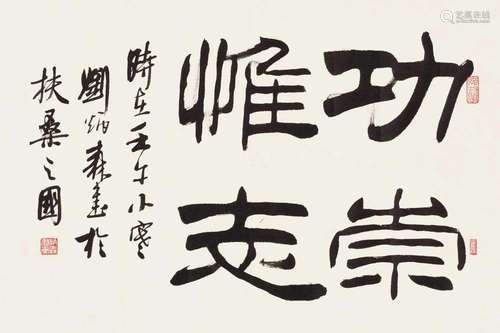 功崇
惟志
時在壬午小寒
劉炳森書於
扶桑之國